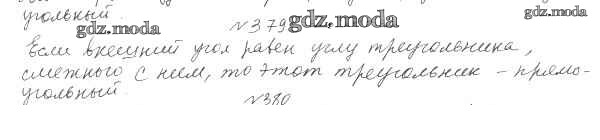 угольный.
gdz.moda
№379
gdz.moda
gdz.moda
Если внешний угол равен углу треугольника,
смежного с ним, то этот треугольник - прямо-
угольный.
№380